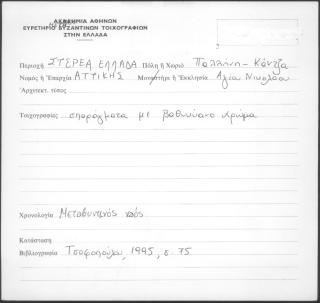 ΑΚΑΔΗΜΙΑ ΑΘΗΝΩΝ
ΕΥΡΕΤΗΡΙΟ ΒΥΖΑΝΤΙΝΩΝ ΤΟΙΧΟΓΡΑΦΙΩΝ
ΣΤΗΝ ΕΛΛΑΔΑ
Περιοχή ΣΤΕΡΕΑ ΕΛΛΑΔΑ Πόλη ή Χωριό Παλλήνη - Κάντζα
Νομός ή Επαρχία ΑΤΤΙΚΗΣ Μοναστήρι ή Εκκλησία Αγίου Νικολάου
Αρχιτεκτ. τύπος
Τοιχογραφίες σπαράγματα με βαθυκύανο χρώμα
Χρονολογία Μεταβυζινός ναός
Κατάσταση
Βιβλιογραφία Τσοφοπούλου, 1995, σ. 75